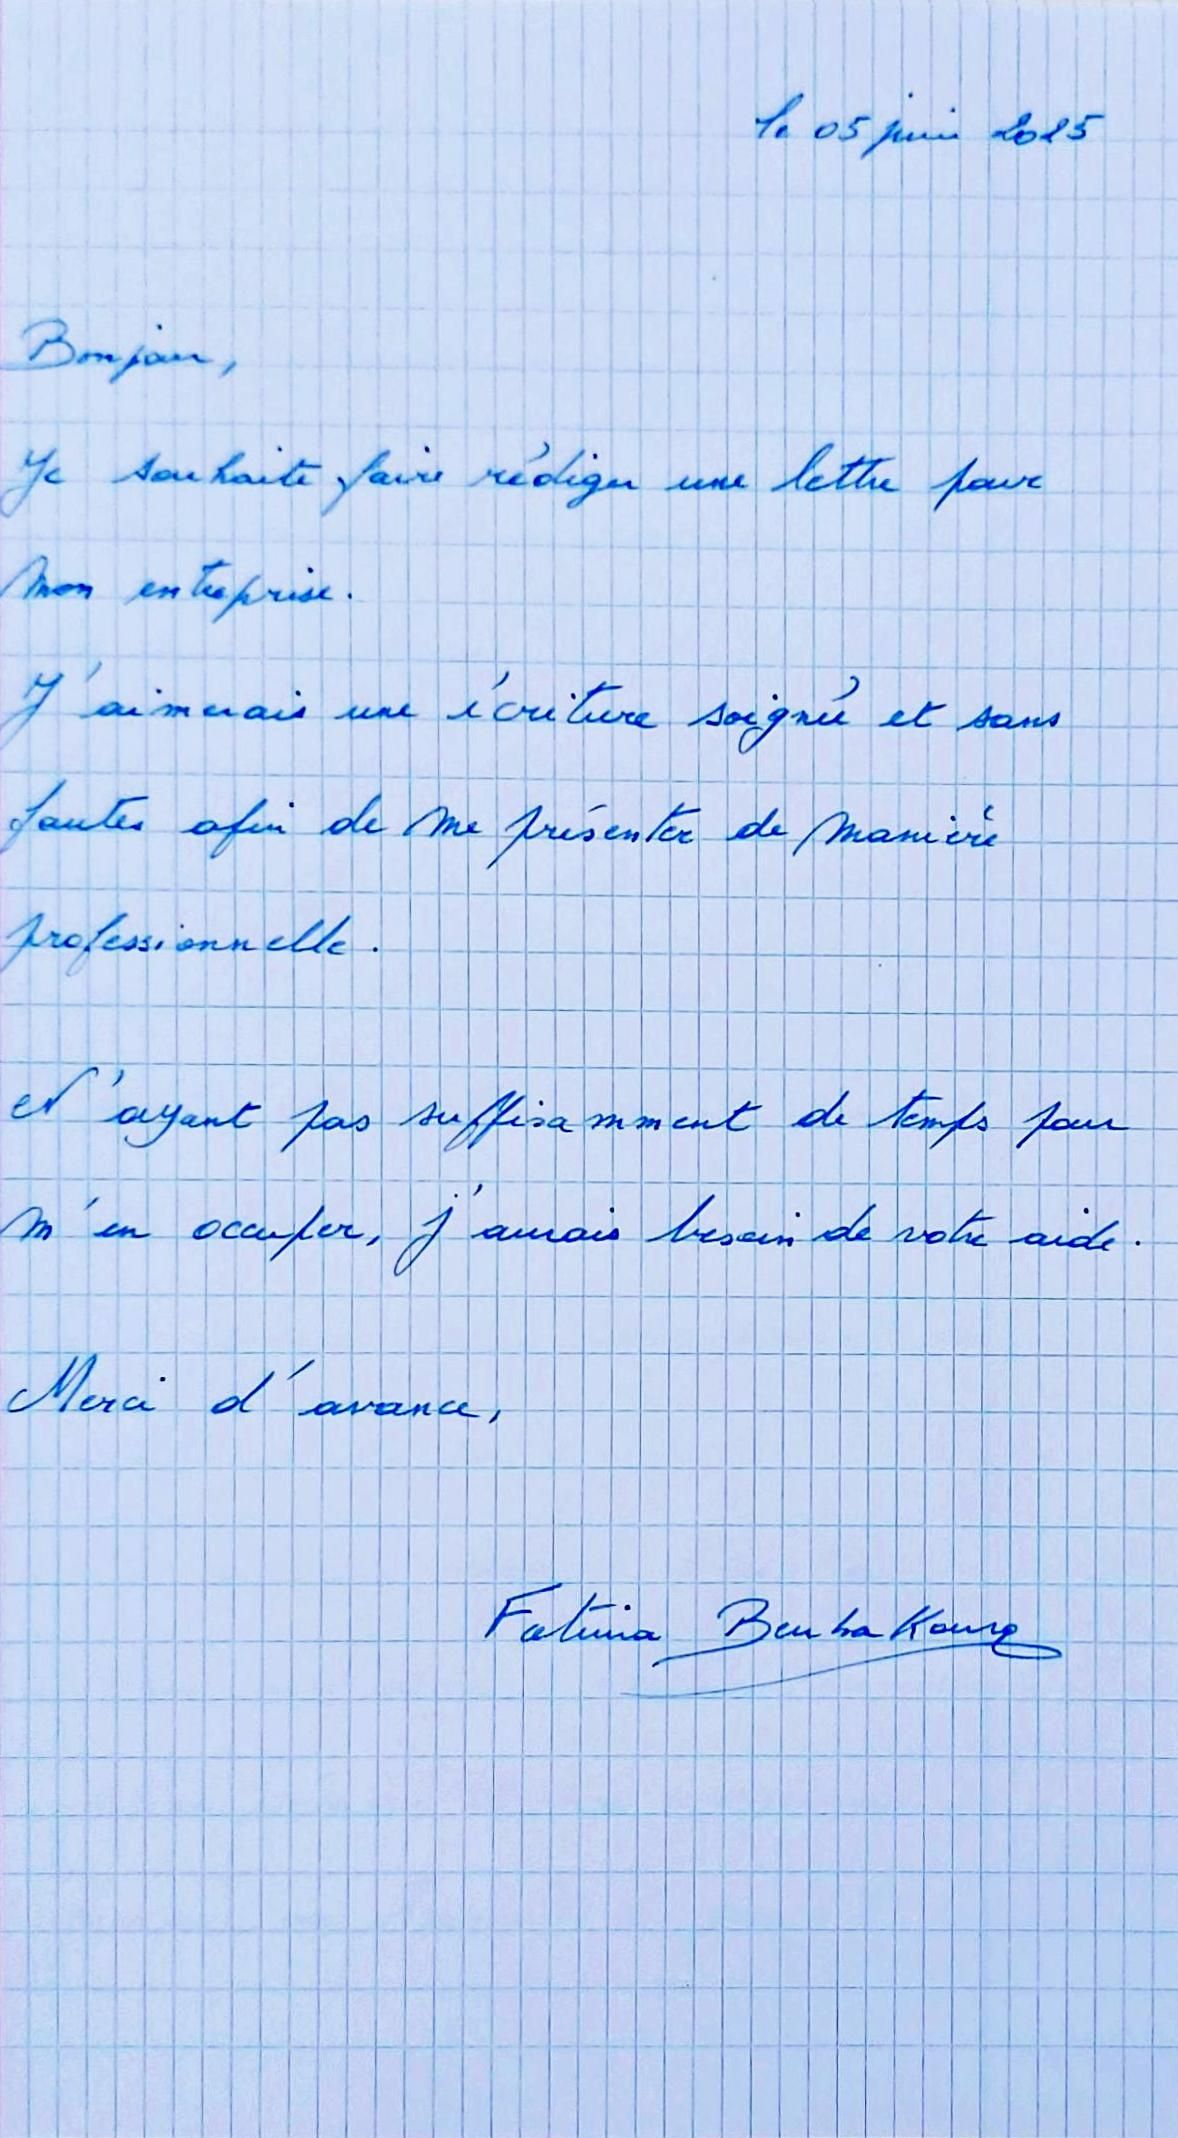 le 05 juin 2025
Bonjour,
Je souhaite faire rédiger une lettre pour
mon entreprise.
J'aimerais une écriture soignée et sans
fautes afin de me présenter de manière
professionnelle.
N'ayant pas suffisamment de temps pour
m'en occuper, j'aurais besoin de votre aide.
Merci d'avance,
Fatima